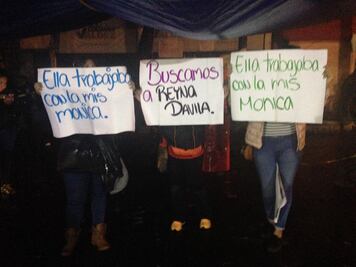 Ella trabajaba
con la mis
monica.
Buscamos
a REYNA
DAVILA.
Ella trabajaba
con la miš
MONICA